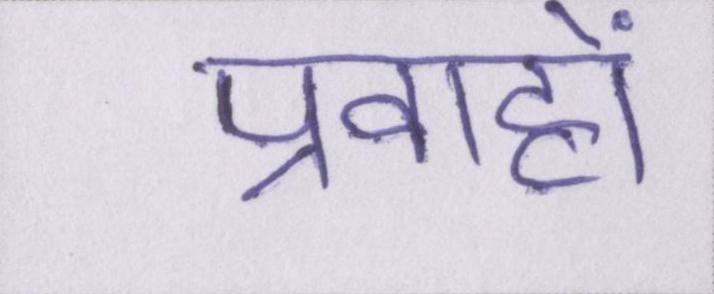 प्रवाहों